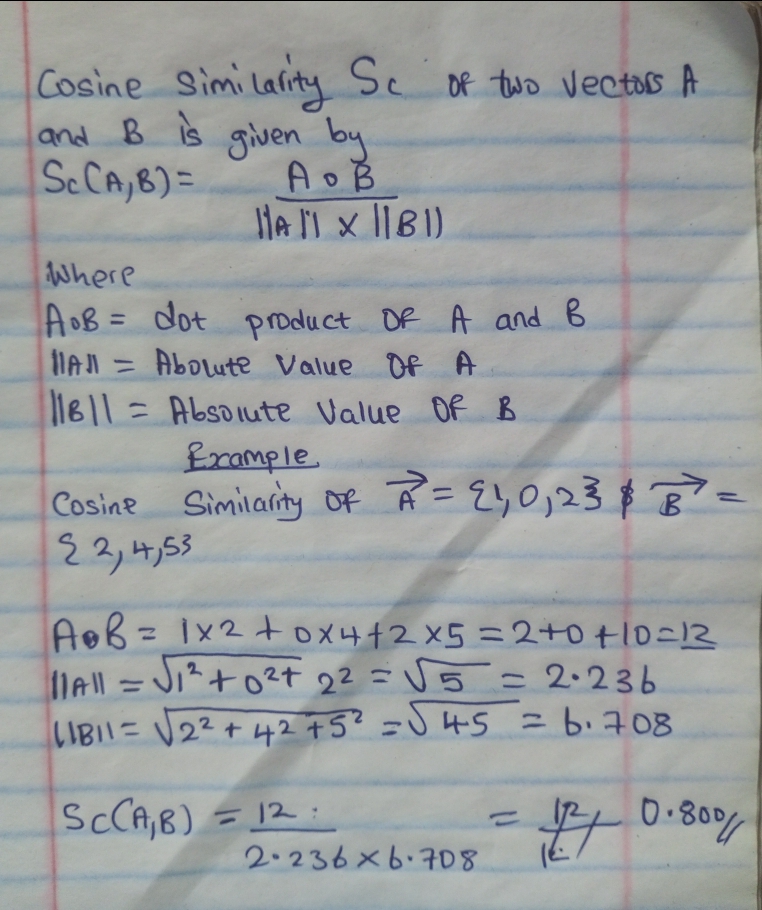 Cosine Similarity Sc of two vectors A
and B is given by
Sc(A,B) = A∘B
||A|| × ||B||
Where
A∘B = dot product OF A and B
||A|| = Abolute Value OF A
||B|| = Absolute Value OF B
Example
Cosine Similarity OF A = {1,0,2} & B =
{2,4,5}
A∘B = 1×2 + 0×4+2×5 = 2+0+10=12
||A|| = √1²+0²+2² = √5 = 2.236
||B|| = √2²+4²+5² = √45 = 6.708
Sc(A,B) = 12 = 0.800//
2.236×6.708